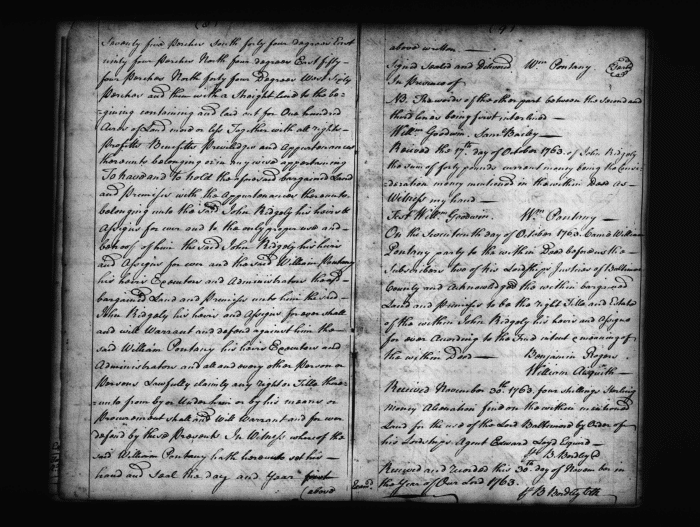 Seventy five Perches South forty four degrees East
ninty four Perches North four degrees East fifty
four Perches North forty four degrees West Sixty
Perches and then with a Straight Line to the be-
gining containing and laid out for One hundred
Acres of Land more or less Together with all rights
Profitts Benefitts Priviledges and Appurtenances
thereunto belonging or in any wise appertaining
To have and to hold the aforesaid bargained Land
and Premisses with the Appurtenances thereunto
belonging unto the said John Ridgely his heirs &
Assigns for ever and to the only proper use and
behoof of him the said John Ridgely his heirs
and Assigns for ever and the said William Pontany
his heirs Executors and Administrators the
bargained Land and Premisses unto him the said
John Ridgely his heirs and Assigns for ever shall
and will Warrant and defend against him the
said William Pontany his heirs Executors and
Administrators and all and every other Person or
Persons Lawfully claiming any right or Title there-
unto from by or Under him or by his means or
Procurement shall and will Warrant and for ever
defend by these Presents In Witness whereof the
said William Pontany hath hereunto set his
hand and Seal the day and Year first
(above
above written
Signed Sealed and Delivered Wm Pontany (Seal)
In Presence of
NB. The words of the other part between the Second and
third lines being first interlined
Willm Goodwin. Saml Bailey
Received the 17th day of October 1763 of John Ridgely
the sum of forty pounds currant money being the Consi-
deration money mentioned in the within Deed as
Witness my hand
Test Willm Goodwin. Wm Pontany
On the Seventeenth day of October 1763. Came William
Pontany party to the within Deed before us the
Subscribers two of his Lordships Justices of Baltimore
County and Acknowledged the within bargained
Land and Premisses to be the right Title and Estate
of the within John Ridgely his heirs and Assigns
for ever According to the true intent & meaning of
the within Deed
Benjamin Rogers
William Asquith
Received November 30th 1763. four shillings Sterling
money Alienation fine on the within mentioned
Land for the use of the Lord Baltimore by Order of
his Lordships Agent Edward Loyd Esquire
B Bordley
Received and recorded this 30th day of November in
the Year of Our Lord 1763.
B Bordley Clk